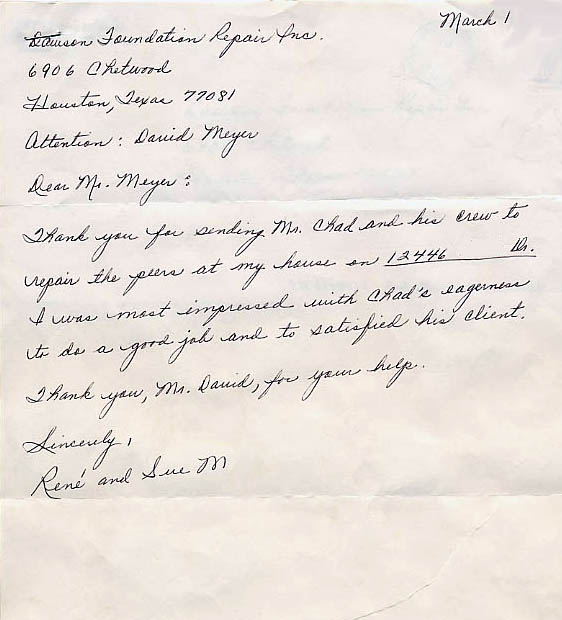 March 1
Dawson Foundation Repair Inc.
6906 Chetwood
Houston, Texas 77081
Attention: David Meyer
Dear Mr. Meyer:
Thank you for sending Mr. Chad and his crew to
repair the peers at my house on 12446 Dr.
I was most impressed with Chad's eagerness
to do a good job and to satisfied his client.
Thank you, Mr. David, for your help.
Sincerely,
René and Sue M